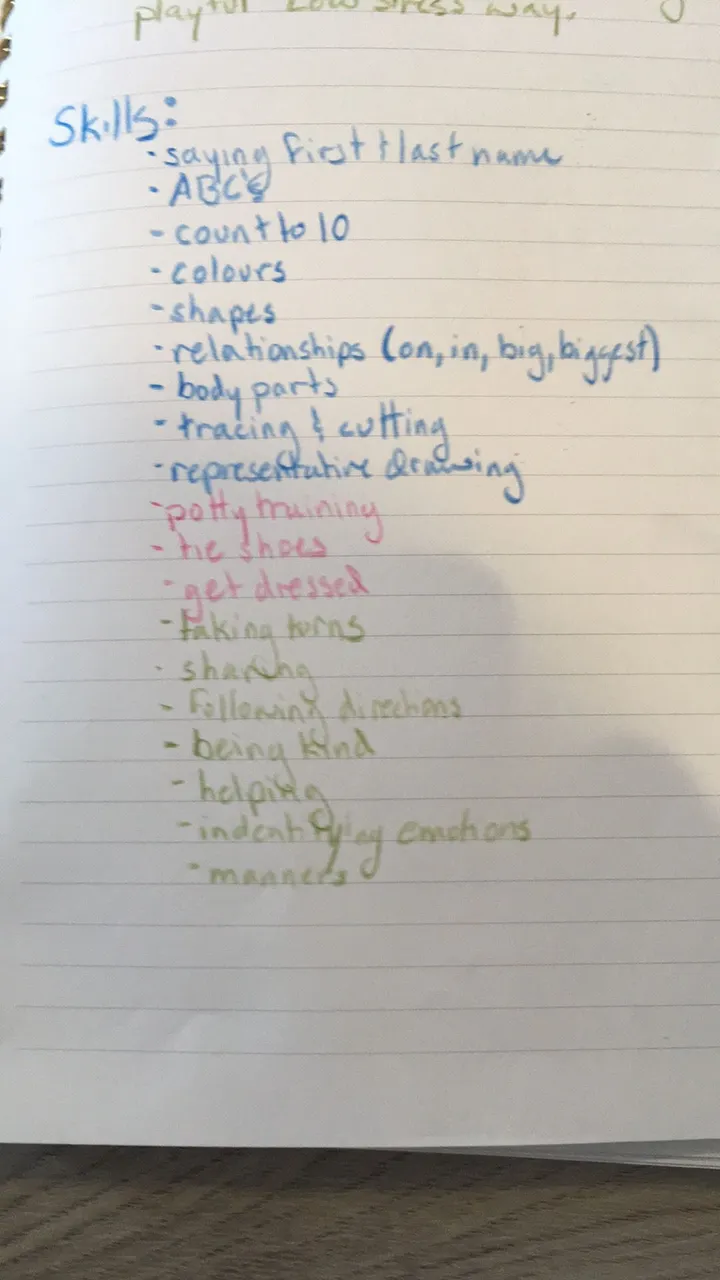 playful low stress way.
Skills:
· saying first + last name
· ABC's
- count to 10
- colours
- shapes
· relationships (on, in, big, biggest)
- body parts
- tracing & cutting
· representative drawing
- potty training
- tie shoes
- get dressed
- taking turns
· sharing
- following directions
- being kind
- helping
- indentifying emotions
- manners